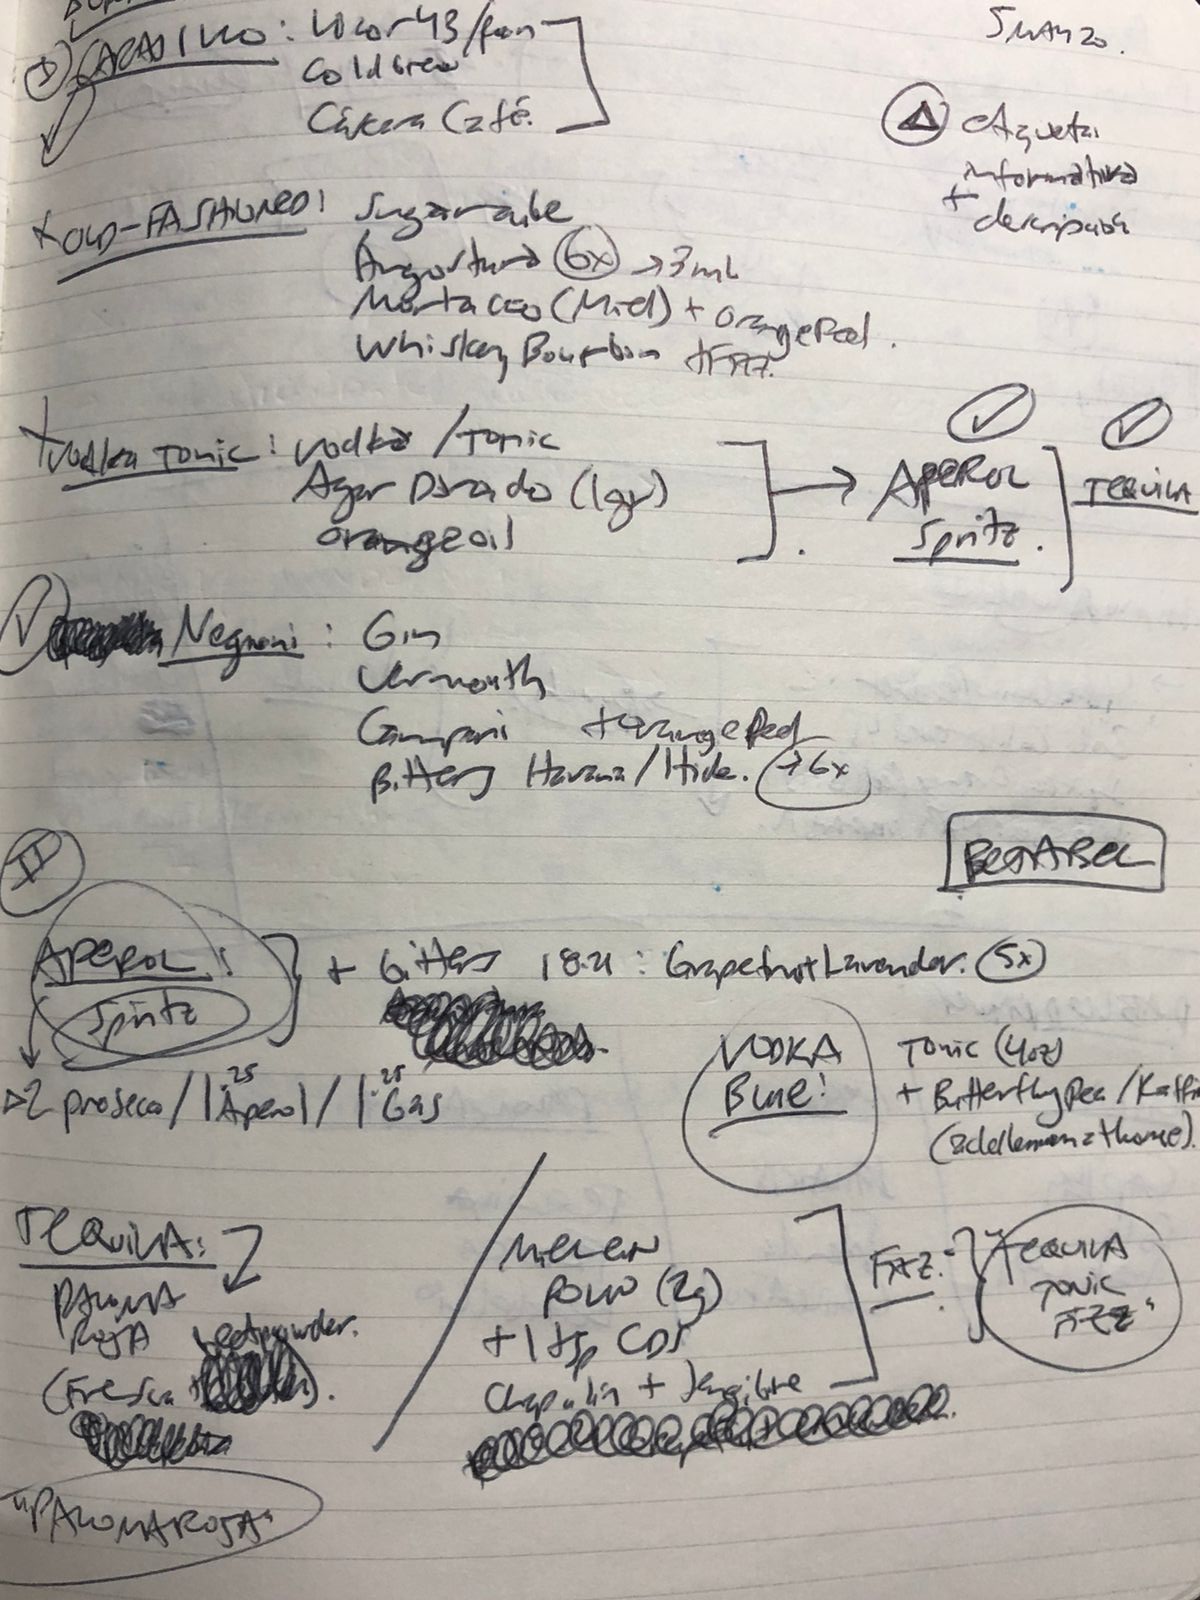 5 MAYZO.
CARAJILLO: Licor 43/
Cold brew
Café.
etiqueta
informativa
+ descripción
+ OLD-FASHIONED: Sugarcube
Angostura 6x → 3ml
(Miel) + orange Peel.
Whiskey Bourbon
+ Vodka TONIC: Vodka / TONIC
Agar Dorado (1gr)
orange oil
→ APEROL
Spritz.
TEQUILA
Negroni: Gin
Vermouth
Campari + orange Peel
Bitters Havana/Hide. → 6x
II
BETABEL
APEROL:
Spritz
+ bitters 18.21: Grapefruit Lavender. 5x
2 proseco / 1.25 Aperol / 1.25 Gas
VODKA
Blue!
TONIC (4oz)
+ Butterfly Pea /
TEQUILA:
PALOMA
ROJA beetpowder.
(Fresca
"PALOMA ROJA"
(2g)
+ 1 tsp
Chapulín + Jengibre
"TEQUILA
TONIC